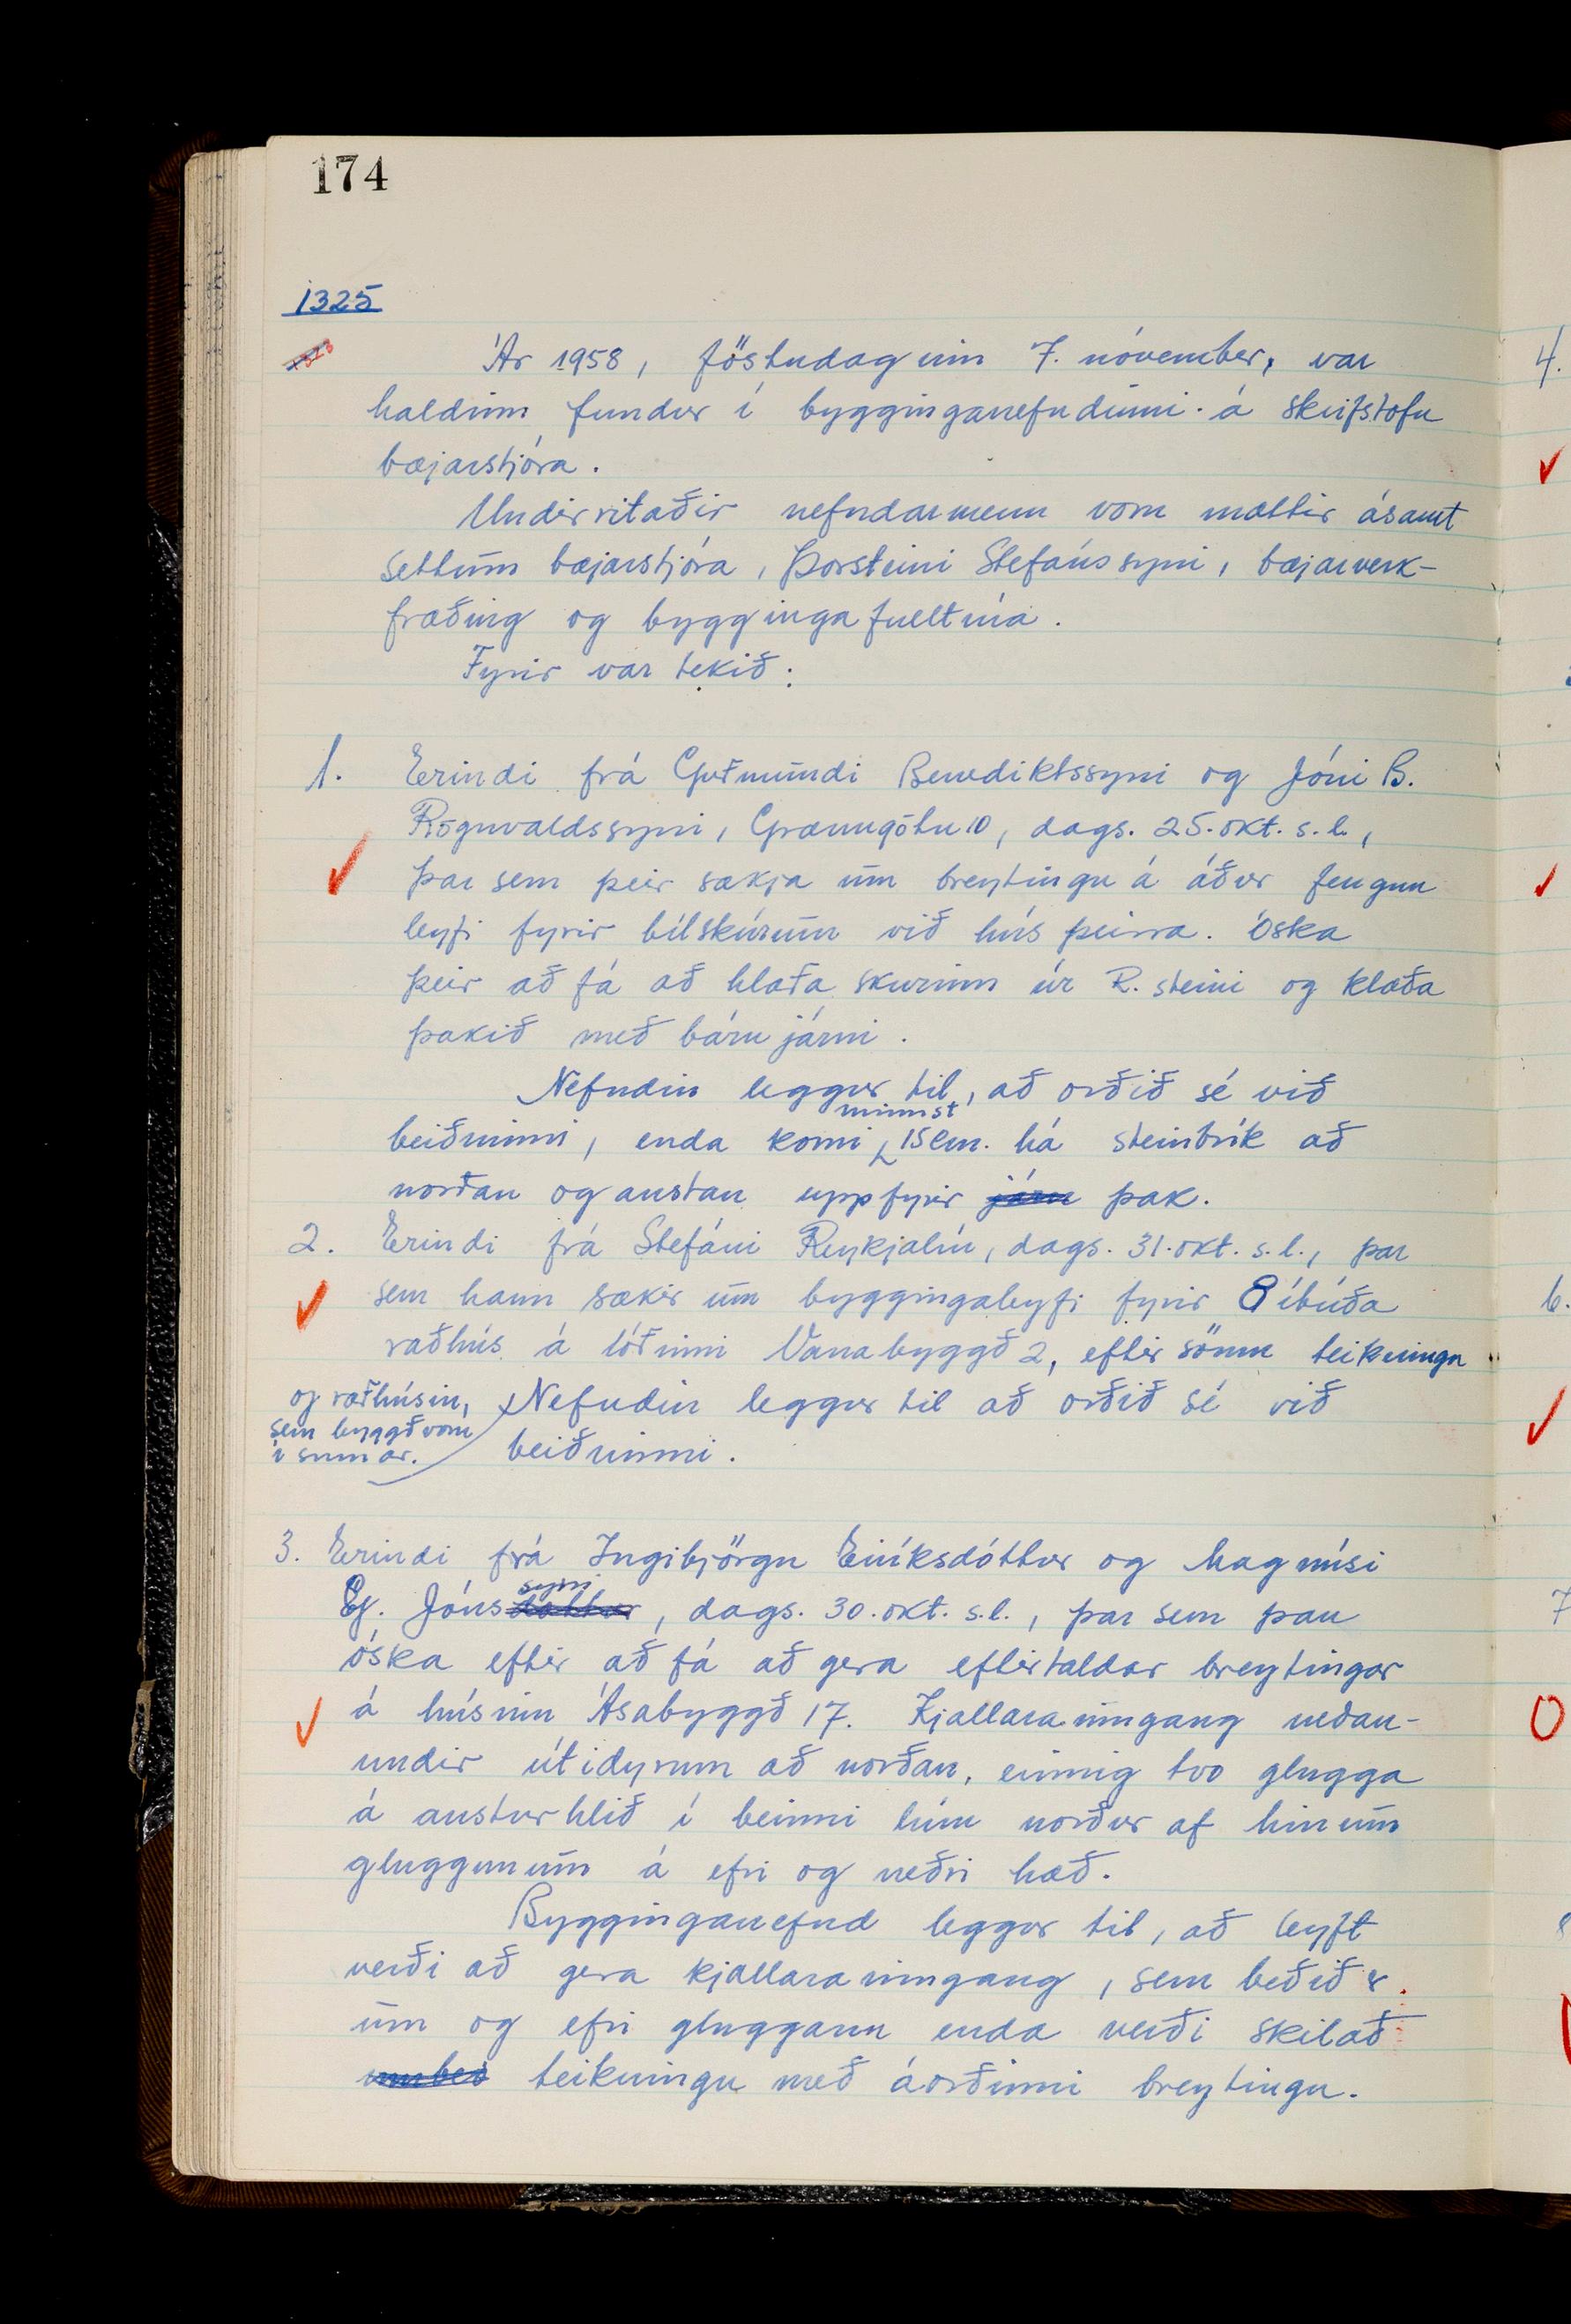 174
1325
Ár 1958, föstudaginn 7. nóvember, var
haldinn fundur í bygginganefndinni á skrifstofu
bæjarstjóra.
Undirritaðir nefndarmenn voru mættir ásamt
settum bæjarstjóra, Þorsteini Stefánssyni, bæjarverk-
fræðing og byggingafulltrúa.
Fyrir var tekið:
1. Erindi frá Guðmundi Benediktssyni og Jóni B.
Rögnvaldssyni, Grænugötu 10, dags. 25. okt. s.l.,
þar sem þeir sækja um breytingu á áður fengnu
leyfi fyrir bílskúrum við hús þeirra. Óska
þeir að fá að hlaða skúrinn úr R. steini og klæða
þakið með bárujárni.
Nefndin leggur til, að orðið sé við
minnst
beiðninni, enda komi 15 cm. há steinbrík að
norðan og austan upp fyrir járn þak.
2. Erindi frá Stefáni Reykjalín, dags. 31. okt. s.l., þar
sem hann sækir um byggingaleyfi fyrir 8 íbúða
raðhús á lóðinni Vanabyggð 2, eftir sömu teikningu
og raðhúsin, Nefndin leggur til að orðið sé við
sem byggð voru
í sumar. beiðninni.
3. Erindi frá Ingibjörgu Eiríksdóttur og Magnúsi
syni
Ej. Jónsdóttur, dags. 30. okt. s.l., þar sem þau
óska eftir að fá að gera eftirtaldar breytingar
á húsinu Ásabyggð 17. Kjallarainngang neðan-
undir útidyrum að norðan, einnig tvo glugga
á austurhlið í beinni línu norður af hinum
gluggunum á efri og neðri hæð.
Bygginganefnd leggur til, að leyft
verði að gera kjallarainngang, sem beðið er
um og efri gluggann enda verði skilað
teikningu með áorðinni breytingu.
4.
6.
7